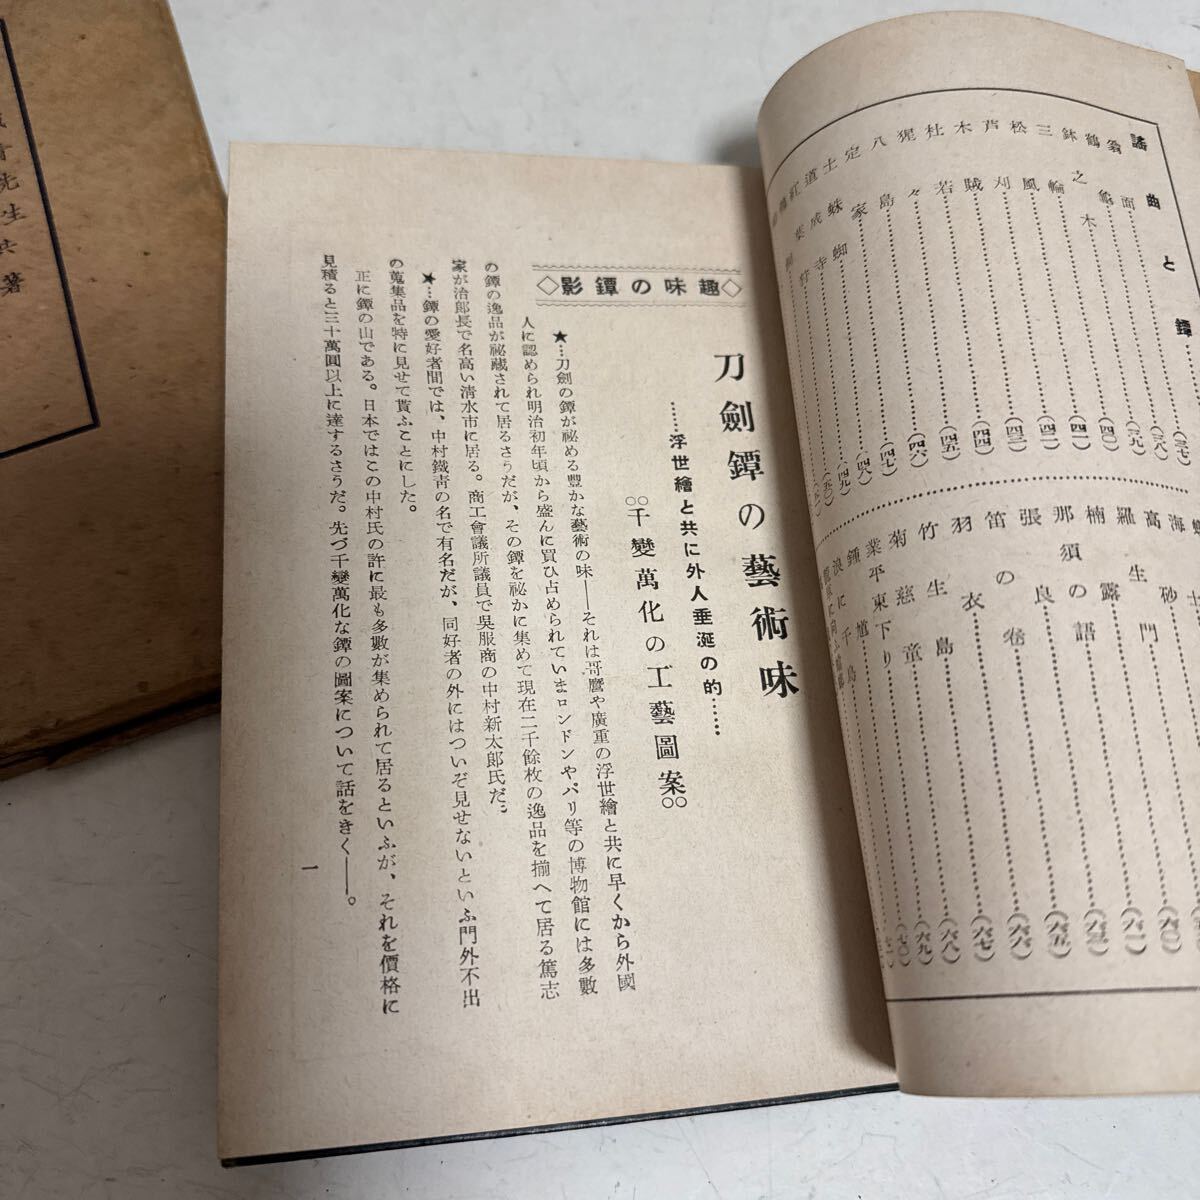 謠曲と鐔
翁面……(三七)
鶴龜……(三八)
鉢之木……(三九)
三輪……(四〇)
松風……(四一)
芦刈……(四二)
木賊……(四三)
杜若……(四四)
猩々……(四五)
八島……(四六)
定家……(四七)
土蜘蛛……(四八)
道成寺……(四九)
紅葉狩……(五〇)
海
高砂……(六〇)
羅生門……(六一)
楠露
那須の語……(六三)
張良……(六五)
笛の卷……(六六)
羽衣……(六七)
竹生島……(六八)
菊慈童……(六九)
業平東下り……(七〇)
鍾馗
浪に千鳥
◇趣味の鐔影◇
刀劍鐔の藝術味
……浮世繪と共に外人垂涎の的……
○○千變萬化の工藝圖案○○
★…刀劍の鐔が祕める豐かな藝術の味――それは哥麿や廣重の浮世繪と共に早くから外國
人に認められ明治初年頃から盛んに買ひ占められていまロンドンやパリ等の博物館には多數
の鐔の逸品が祕藏されて居るさうだが、その鐔を祕かに集めて現在二千餘枚の逸品を揃へて居る篤志
家が治郎長で名高い清水市に居る。商工會議所議員で吳服商の中村新太郎氏だ。
★…鐔の愛好者間では、中村鐵靑の名で有名だが、同好者の外にはついぞ見せないといふ門外不出
の蒐集品を特に見せて貰ふことにした。
正に鐔の山である。日本ではこの中村氏の許に最も多數が集められて居るといふが、それを價格に
見積ると三十萬圓以上に達するさうだ。先づ千變萬化な鐔の圖案について話をきく――。
一
靑先生共著